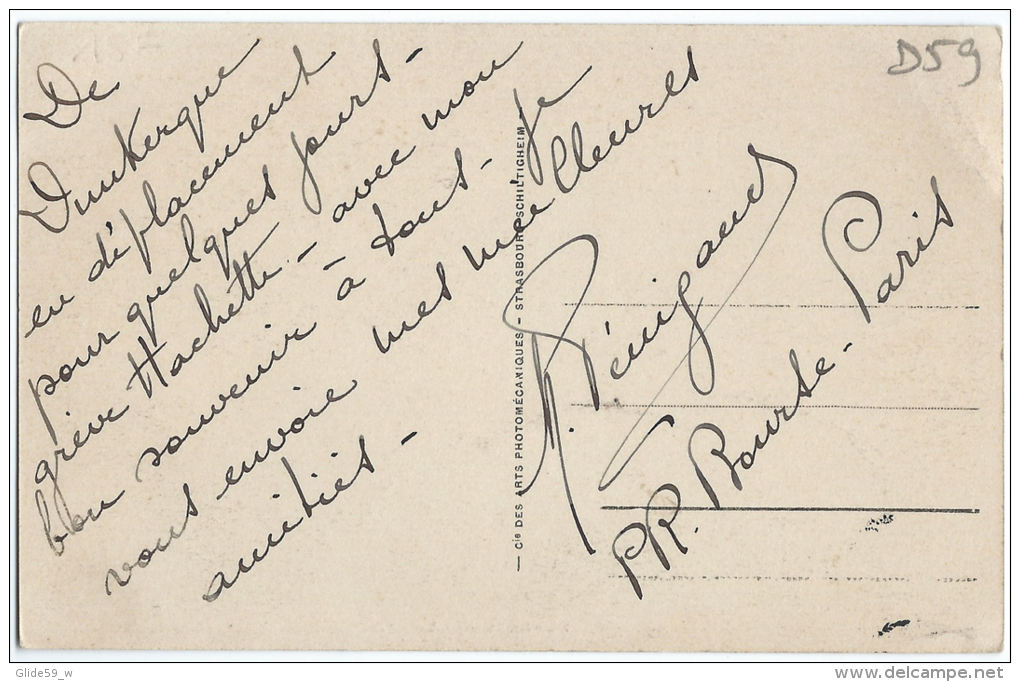 De
Dunkerque
en déplacement
pour quelques jours -
grève Hachette - avec mon
bon souvenir à tous - je
vous envoie mes meilleures
amitiés -
D59
- Cie DES ARTS PHOTOMÉCANIQUES - STRASBOURG-SCHILTIGHEIM
R. Pénigaud
PR. Bourse - Paris
Glide59_w
www.delcampe.net